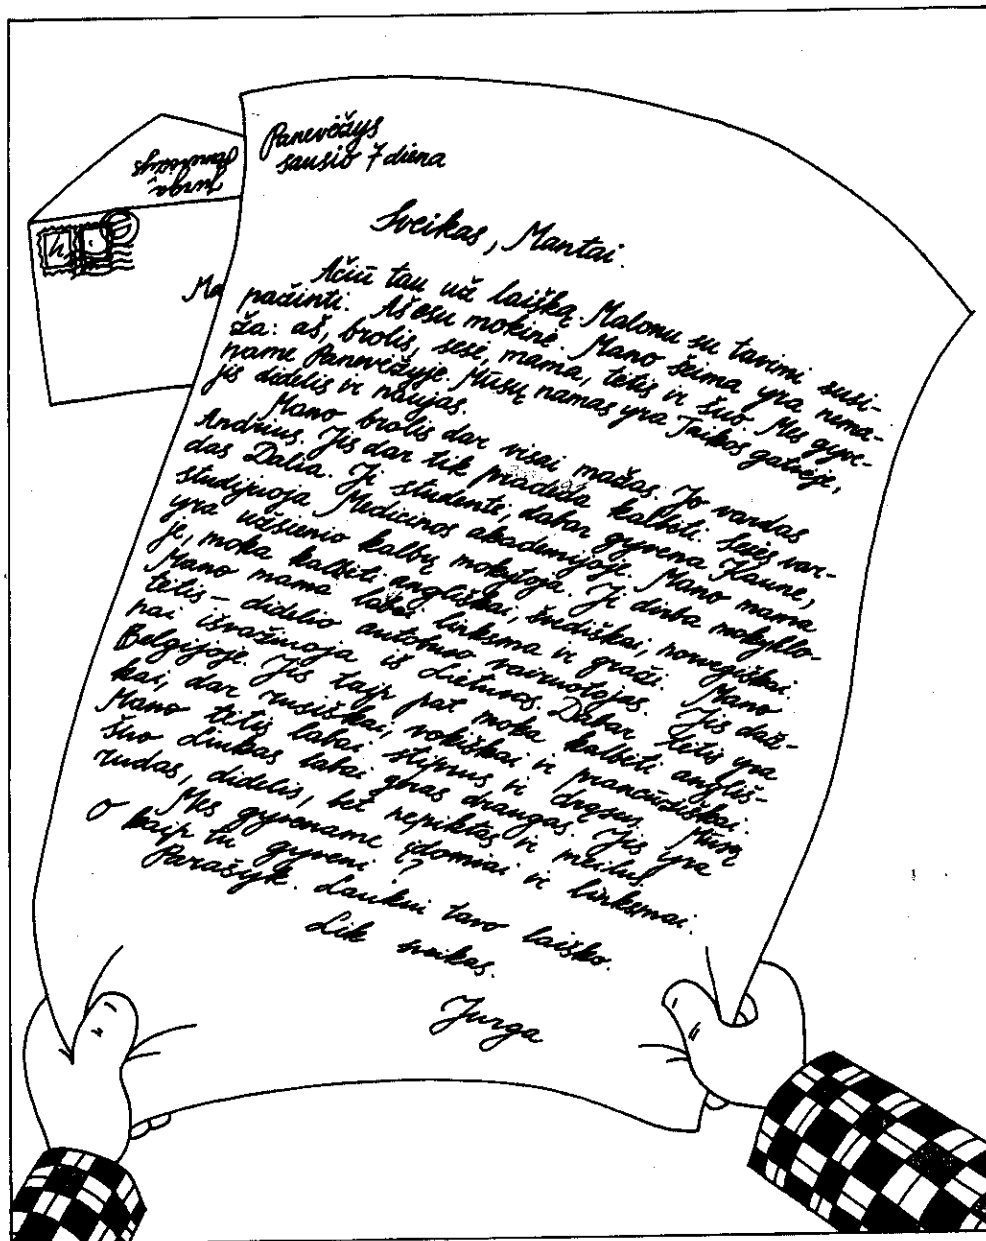 Jurga,
Panevėžys
Ma
Panevėžys
sausio 7 diena
Sveikas, Mantai.
Ačiū tau už laišką. Malonu su tavimi susi-
pažinti. Aš esu mokinė. Mano šeima yra nema-
ža: aš, brolis, sesė, mama, tėtis ir šuo. Mes gyve-
name Panevėžyje. Mūsų namas yra Taikos gatvėje,
jis didelis ir naujas.
Mano brolis dar visai mažas. Jo vardas
Andrius. Jis dar tik pradeda kalbėti. Sesės var-
das Dalia. Ji studentė, dabar gyvena Kaune,
studijuoja Medicinos akademijoje. Mano mama
yra užsienio kalbų mokytoja. Ji dirba mokyklo-
je, moka kalbėti angliškai, švediškai, norvegiškai.
Mano mama labai linksma ir graži. Mano
tėtis – didelio autobuso vairuotojas. Jis daž-
nai išvažiuoja iš Lietuvos. Dabar tėtis yra
Belgijoje. Jis taip pat moka kalbėti angliš-
kai, dar rusiškai, vokiškai ir prancūziškai.
Mano tėtis labai stiprus ir drąsus. Mūsų
šuo Liukas labai geras draugas. Jis yra
rudas, didelis, bet nepiktas ir meilus.
Mes gyvename įdomiai ir linksmai.
O kaip tu gyveni?
Parašyk. Laukiu tavo laiško.
Lik sveikas.
Jurga